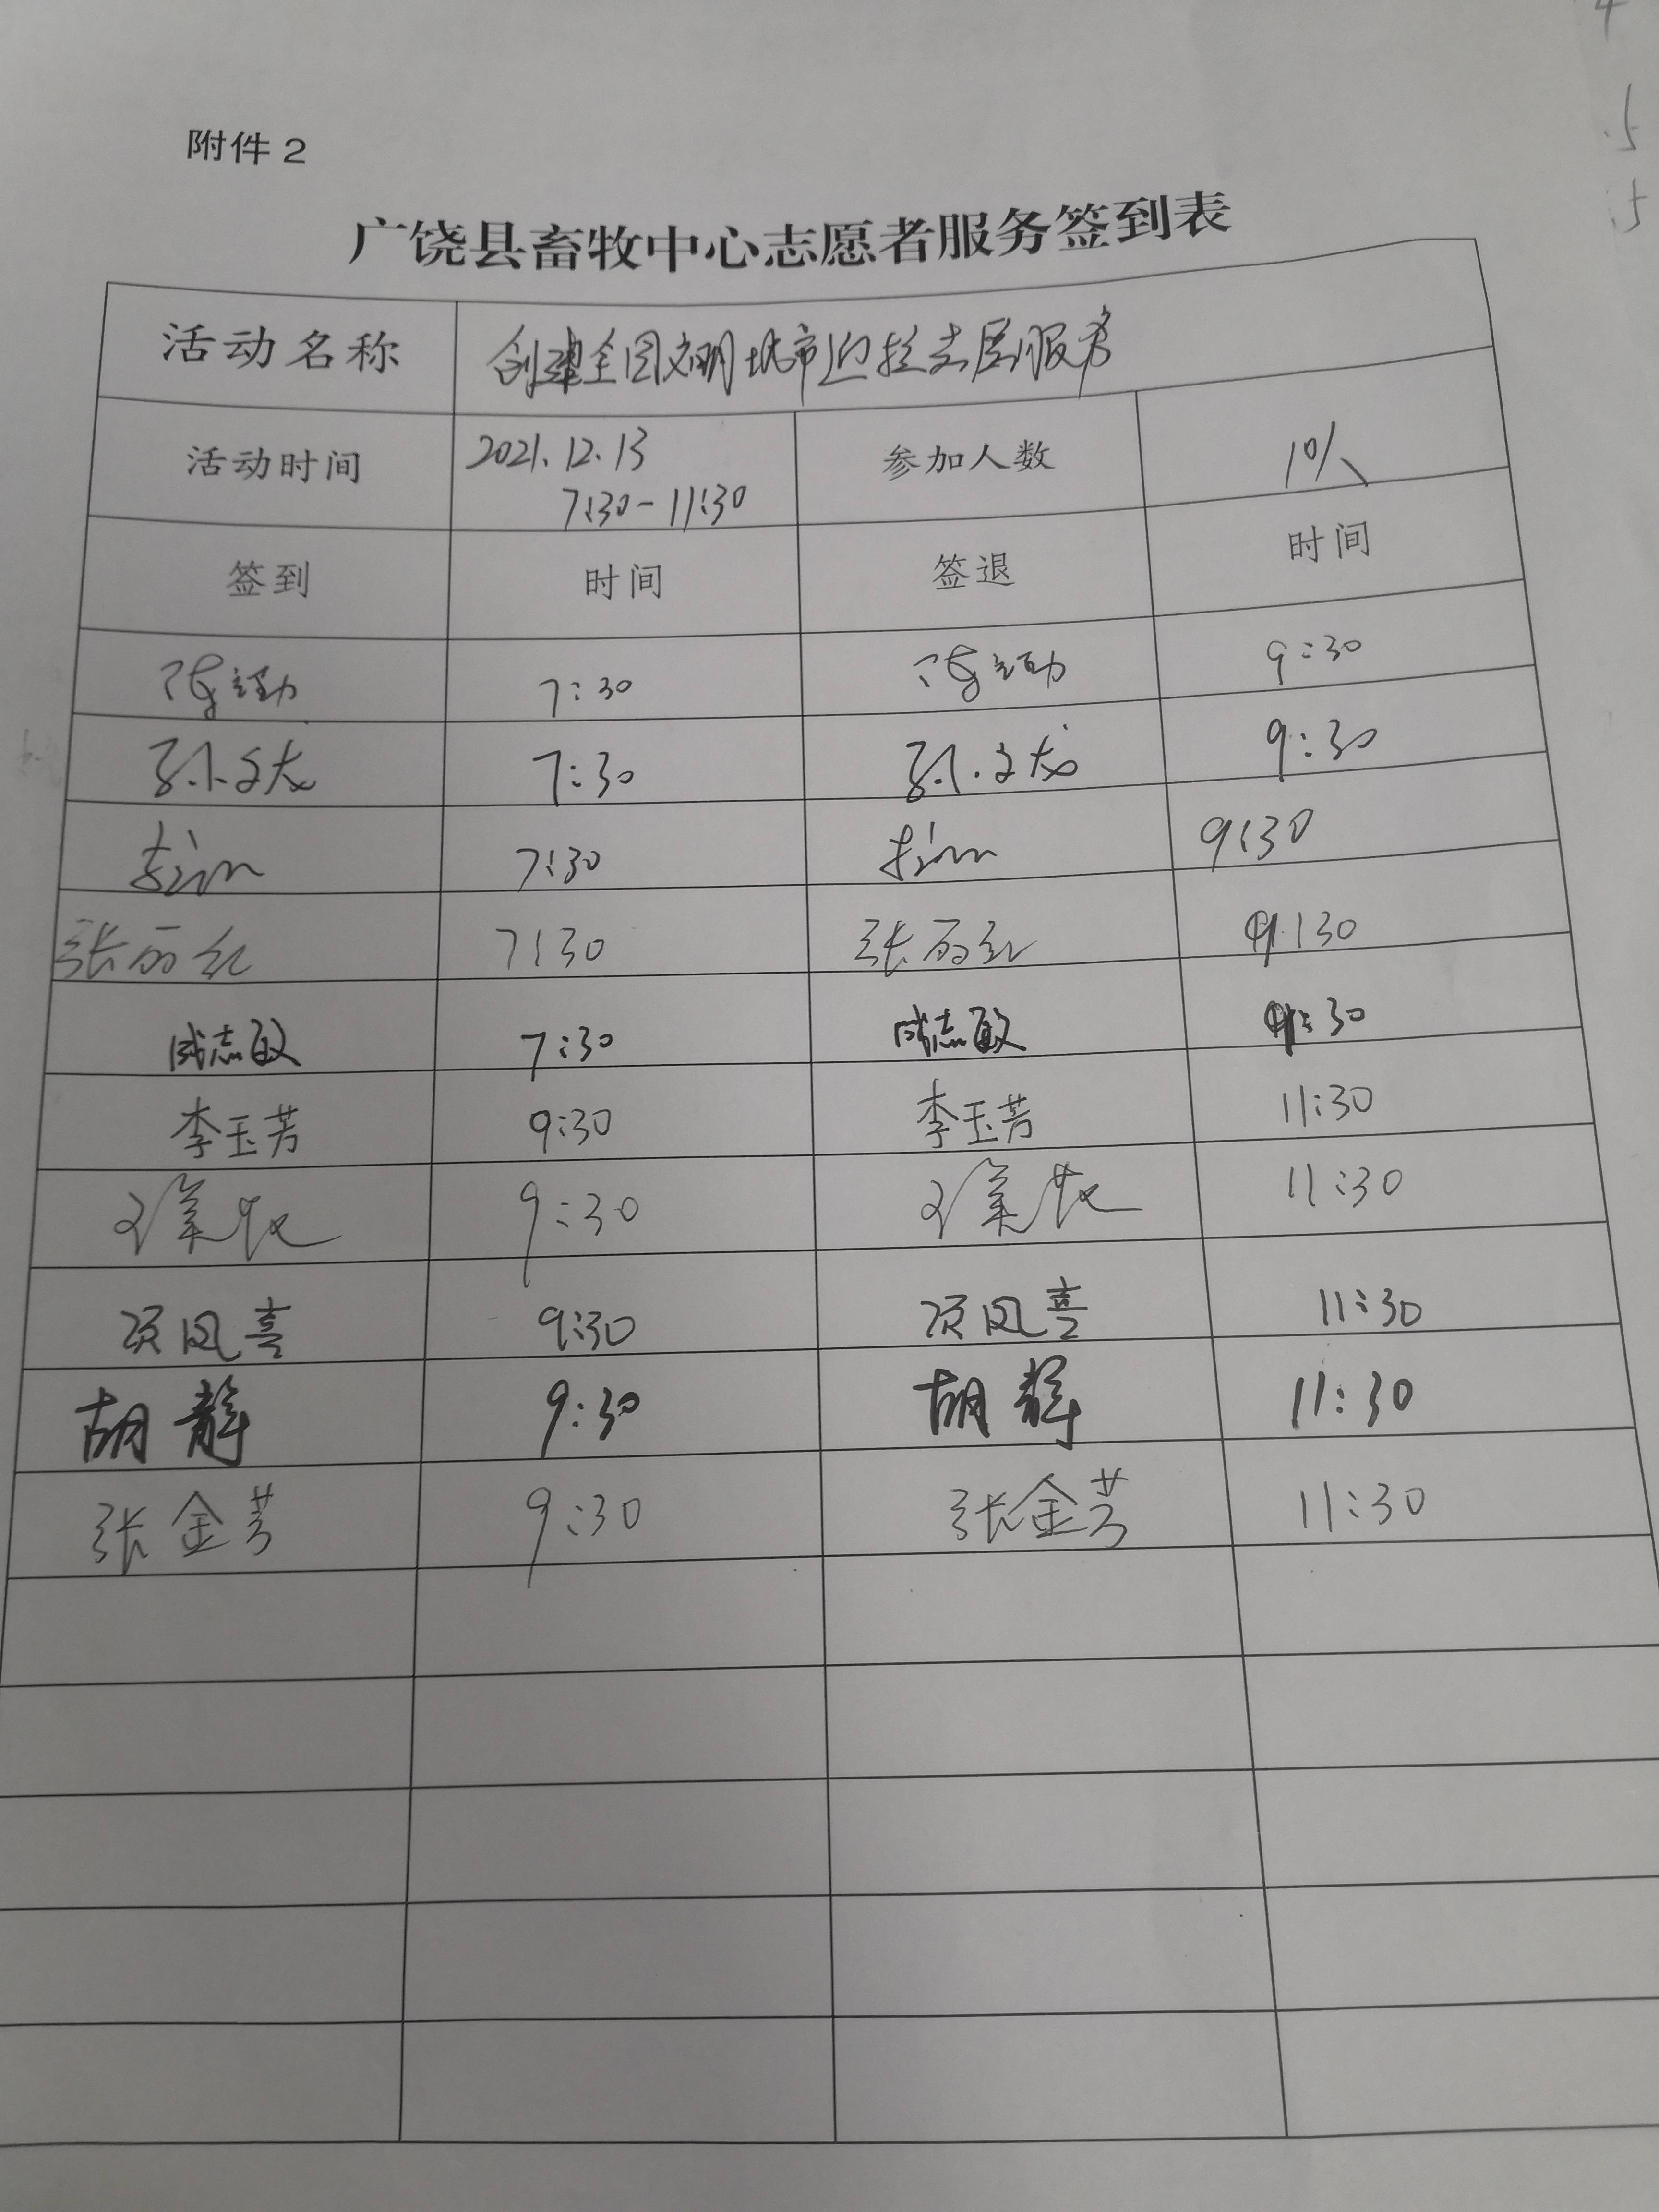 附件2
广饶县畜牧中心志愿者服务签到表
活动名称 创建全国文明城市迎检志愿服务
活动时间 2021.12.13 7:30-11:30 参加人数 10人
签到 时间 签退 时间
7:30 9:30
孙文龙 7:30 孙文龙 9:30
7:30 9:30
张丽红 7:30 张丽红 9:30
成志敏 7:30 成志敏 9:30
李玉芳 9:30 李玉芳 11:30
9:30 11:30
项凤喜 9:30 项凤喜 11:30
胡静 9:30 胡静 11:30
张金芳 9:30 张金芳 11:30